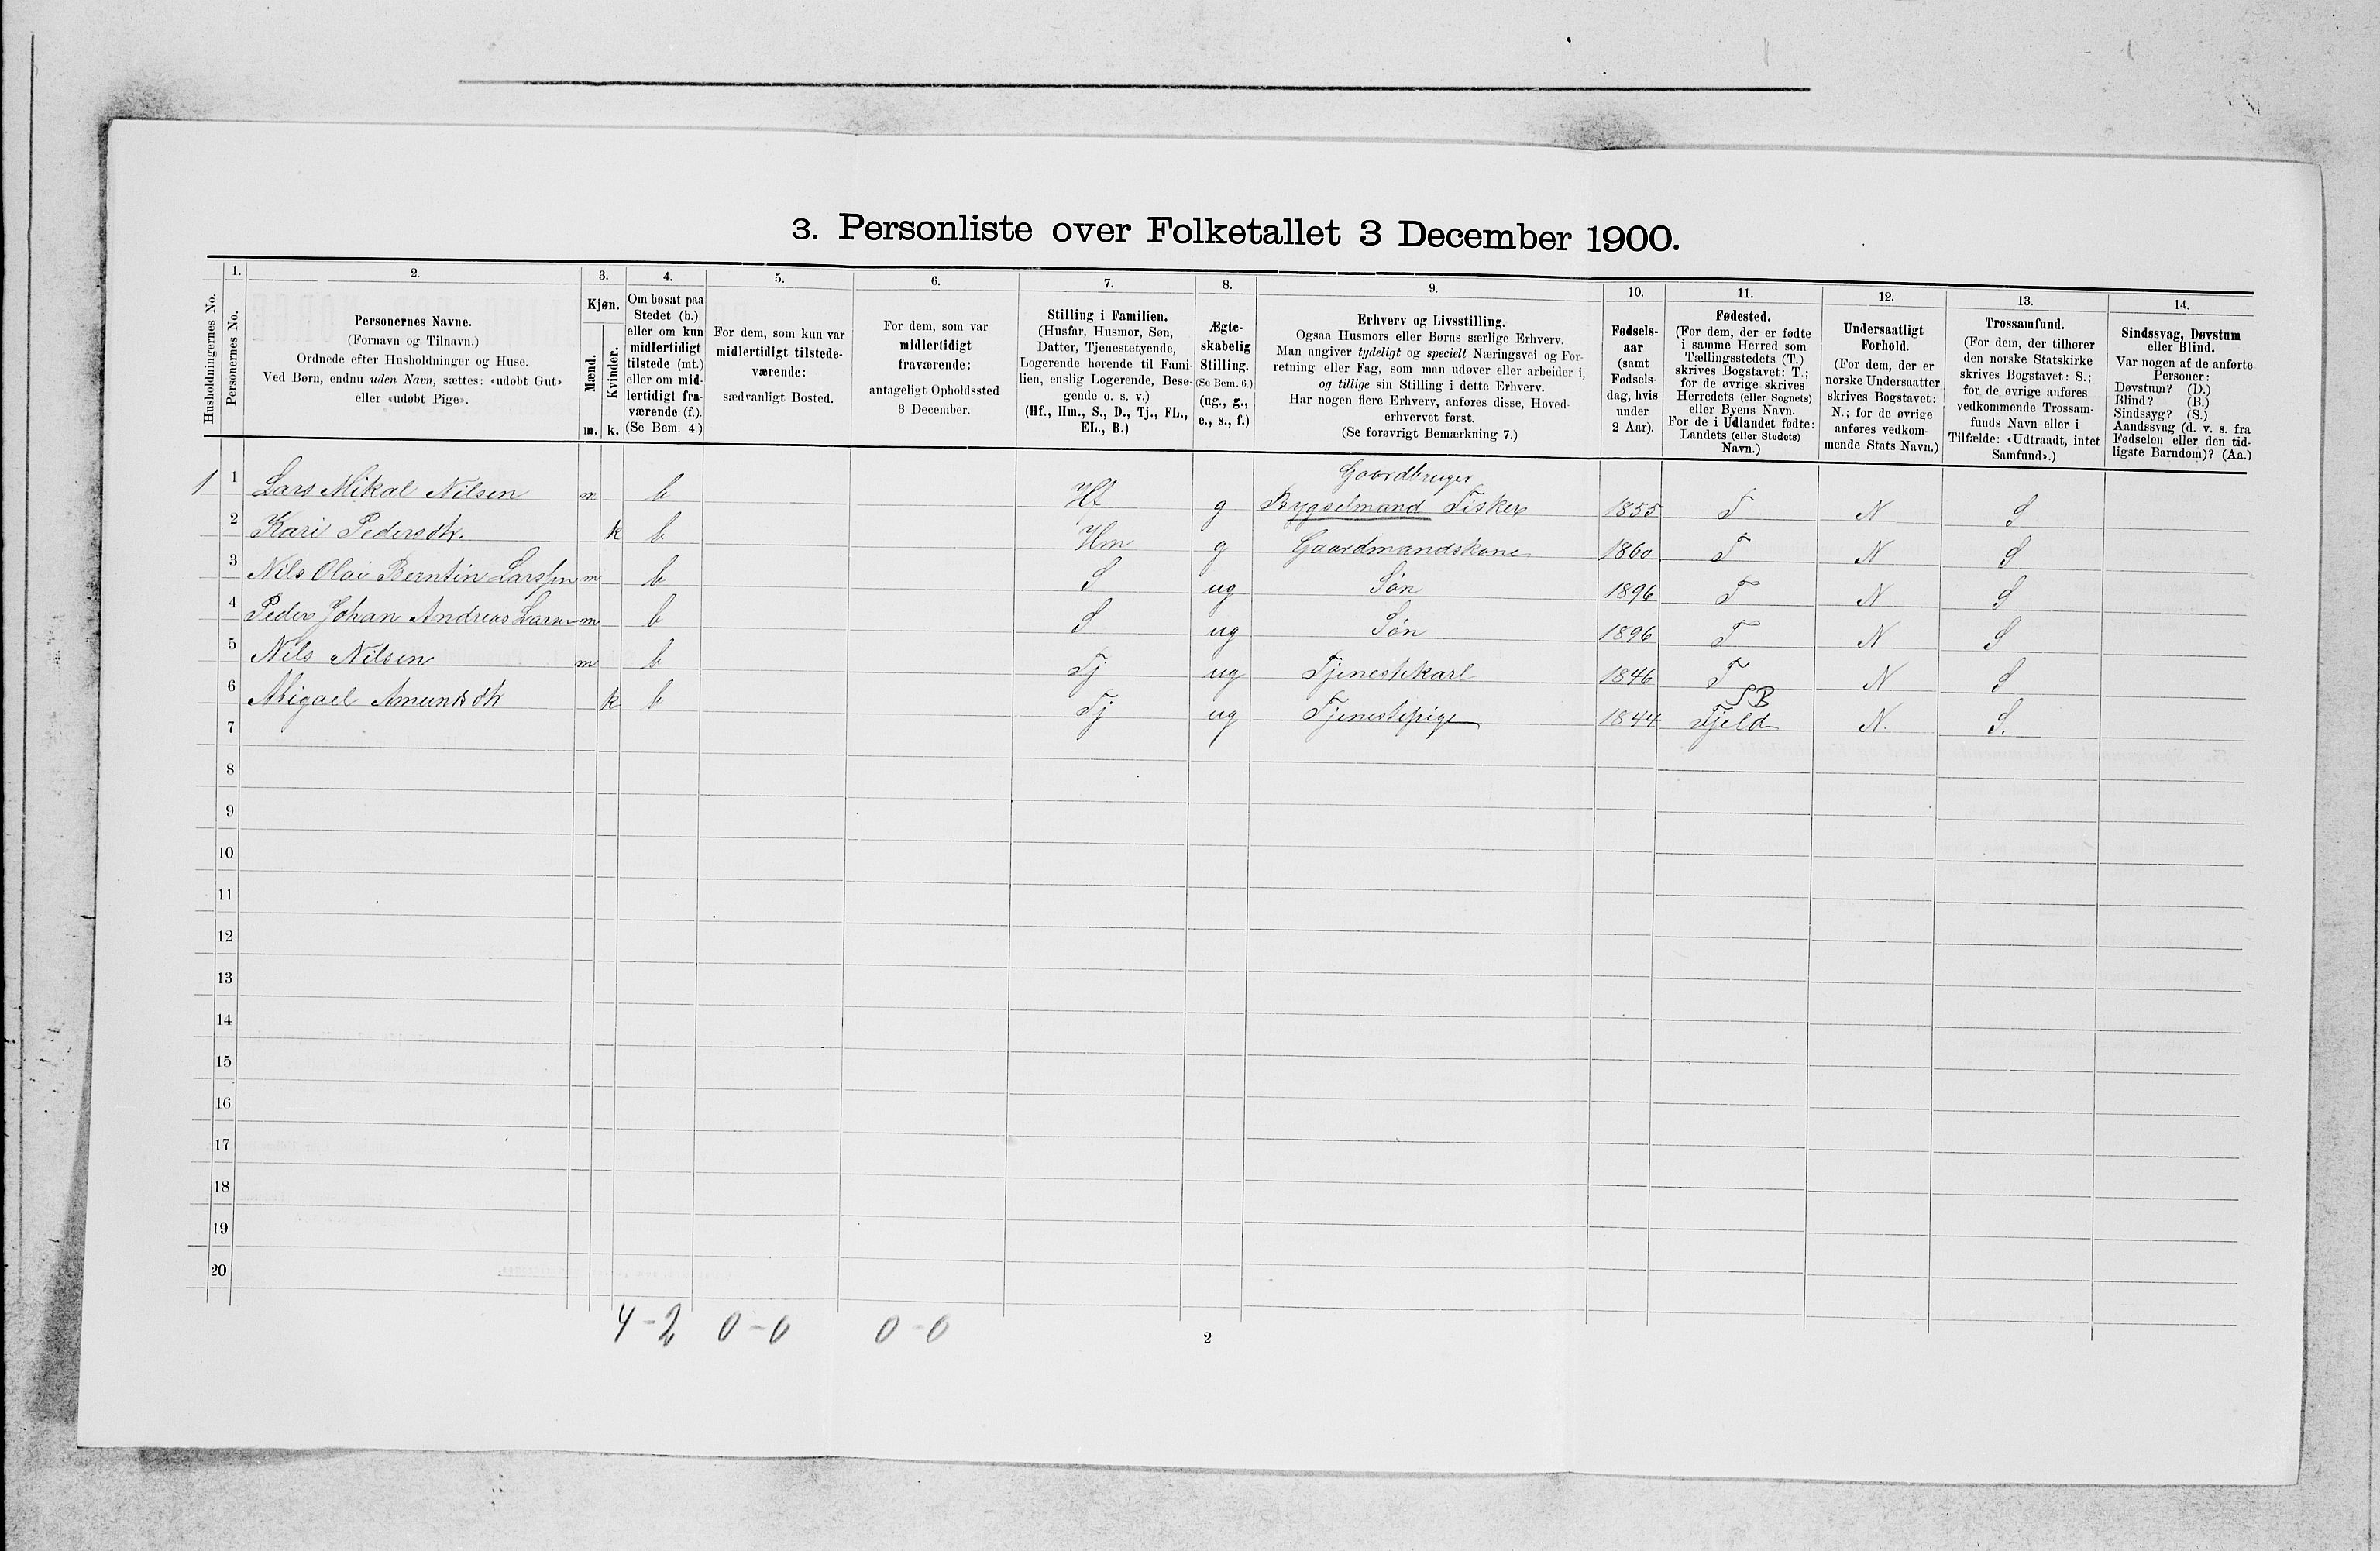 3. Personliste over Folketallet 3 December 1900.
Husholdningernes No.
1.
Personernes No.
2.
Personernes Navne.
(Fornavn og Tilnavn.)
Ordnede efter Husholdninger og Huse.
Ved Børn, endnu uden Navn, sættes: «udøbt Gut»
eller «udøbt Pige».
3.
Kjøn.
Mænd.
Kvinder.
m.
k.
4.
Om bosat paa
Stedet (b.)
eller om kun
midlertidigt
tilstede (mt.)
eller om mid-
lertidigt fra-
værende (f.).
(Se Bem. 4.)
5.
For dem, som kun var
midlertidigt tilstede-
værende:
sædvanligt Bosted.
6.
For dem, som var
midlertidigt
fraværende:
antageligt Opholdssted
3 December.
7.
Stilling i Familien.
(Husfar, Husmor, Søn,
Datter, Tjenestetyende,
Logerende hørende til Fami-
lien, enslig Logerende, Besø-
gende o. s. v.)
(Hf., Hm., S., D., Tj., FL.,
EL., B.)
8.
Ægte-
skabelig
Stilling.
(Se Bem. 6.)
(ug., g.,
e., s., f.)
9.
Erhverv og Livsstilling.
Ogsaa Husmors eller Børns særlige Erhverv.
Man angiver tydeligt og specielt Næringsvei og For-
retning eller Fag, som man udøver eller arbeider i,
og tillige sin Stilling i dette Erhverv.
Har nogen flere Erhverv, anføres disse, Hoved-
erhvervet først.
(Se forøvrigt Bemærkning 7.)
10.
Fødsels-
aar
(samt
Fødsels-
dag, hvis
under
2 Aar).
11.
Fødested.
(For dem, der er fødte
i samme Herred som
Tællingsstedets (T.)
skrives Bogstavet: T.;
for de øvrige skrives
Herredets (eller Sognets)
eller Byens Navn.
For de i Udlandet fødte:
Landets (eller Stedets)
Navn.)
12.
Undersaatligt
Forhold.
(For dem, der er
norske Undersaatter
skrives Bogstavet:
N.; for de øvrige
anføres vedkom-
mende Stats Navn.)
13.
Trossamfund.
(For dem, der tilhører
den norske Statskirke
skrives Bogstavet: S.;
for de øvrige anføres
vedkommende Trossam-
funds Navn eller i
Tilfælde: «Udtraadt, intet
Samfund».)
14.
Sindssvag, Døvstum
eller Blind.
Var nogen af de anførte
Personer:
Døvstum? (D.)
Blind? (B.)
Sindssyg? (S.)
Aandssvag (d. v. s. fra
Fødselen eller den tid-
ligste Barndom)? (Aa.)
Gaardbruger
1 1 Lars Mikal Nilsen m b Hf g Bygselmand Fisker 1855 T N S
2 Kari Pedersdtr. k b Hm g Gaardmandskone 1860 T N S
3 Nils Olai Berntin Larssen m b S ug Søn 1896 T N S
4 Peder Johan Andreas Larsen m b S ug Søn 1896 T N S
5 Nils Nilsen m b Tj ug Tjenestekarl 1846 T N S
SB
6 Abigael Amundsdtr k b Tj ug Tjenestepige 1844 Fjeld N. S.
7
8
9
10
11
12
13
14
15
16
17
18
19
20
4-2 0-0 0-0
2